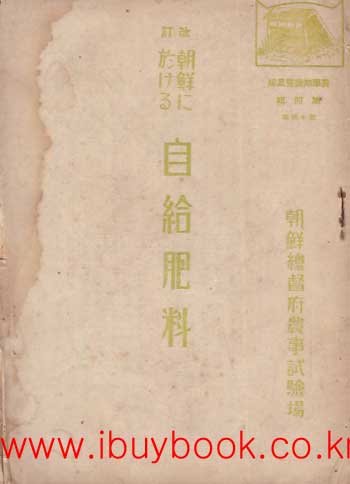 朝鮮總督府農事試驗場
改訂
朝鮮に
於ける
自給肥料
www.ibuybook.co.kr